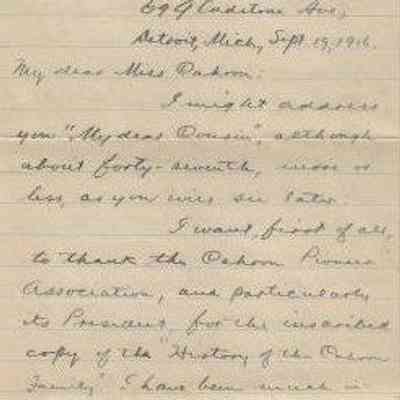 69 Gladstone Ave,
Detroit, Mich, Sept 19, 1916.
My dear Miss Cahoon:
I might address
you "My dear Cousin", although
about forty-seventh, more or
less, as you will see later.
I want, first of all,
to thank the Cahoon Pioneer
Association, and particularly
its President, for the inscribed
copy of the "History of the Cahoon
Family". I have been much in